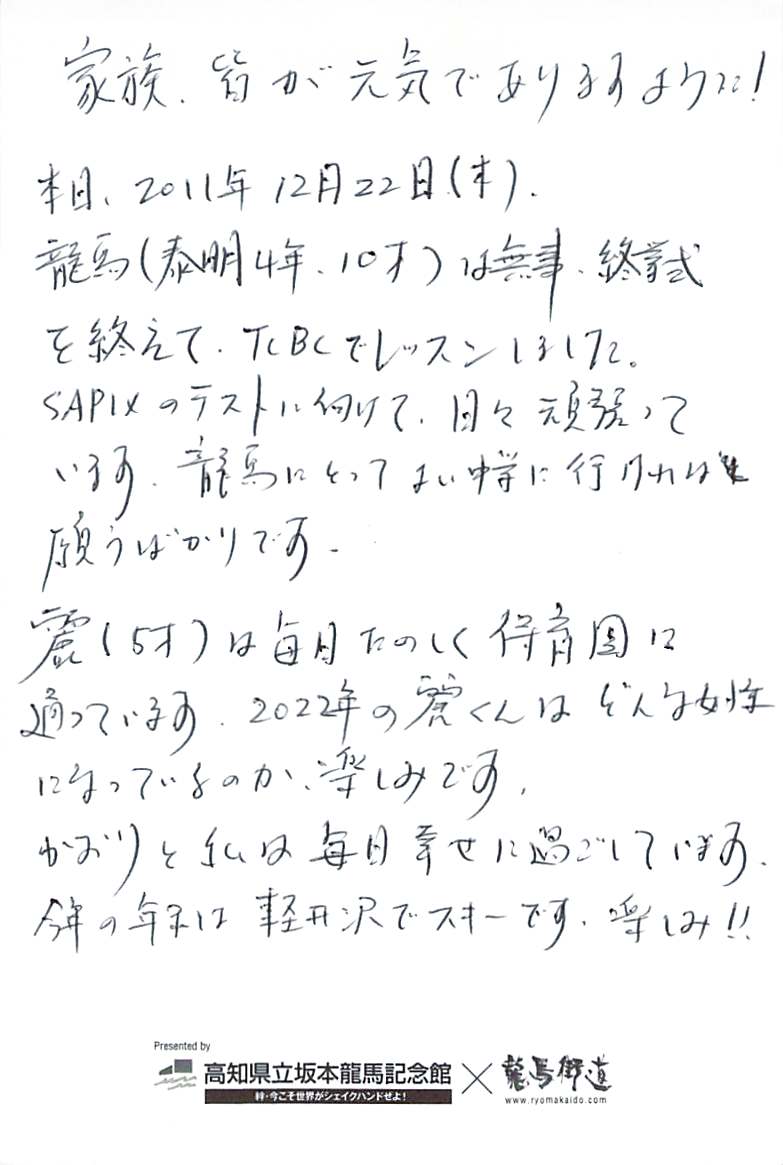 家族、皆が元気でありますように!
本日、2011年12月22日(木)、
龍馬(泰明4年、10才)は無事、終業式
を終えて、TCBCでレッスンしました。
SAPIXのテストに向けて、日々頑張って
います。龍馬にとってよい中学に行ければと
願うばかりです。
麗(5才)は毎日たのしく保育園に
通っています。2022年の麗くんはどんな女性
になっているのか、楽しみです。
かおりと私は毎日幸せに過ごしています。
今年の年末は軽井沢でスキーです。楽しみ!!
Presented by
高知県立坂本龍馬記念館 × 龍馬街道
絆・今こそ世界がシェイクハンドぜよ!
www.ryomakaido.com